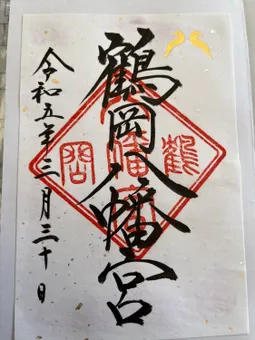 鶴岡八幡宮
令和五年三月三十日
鶴
岡
八幡宮